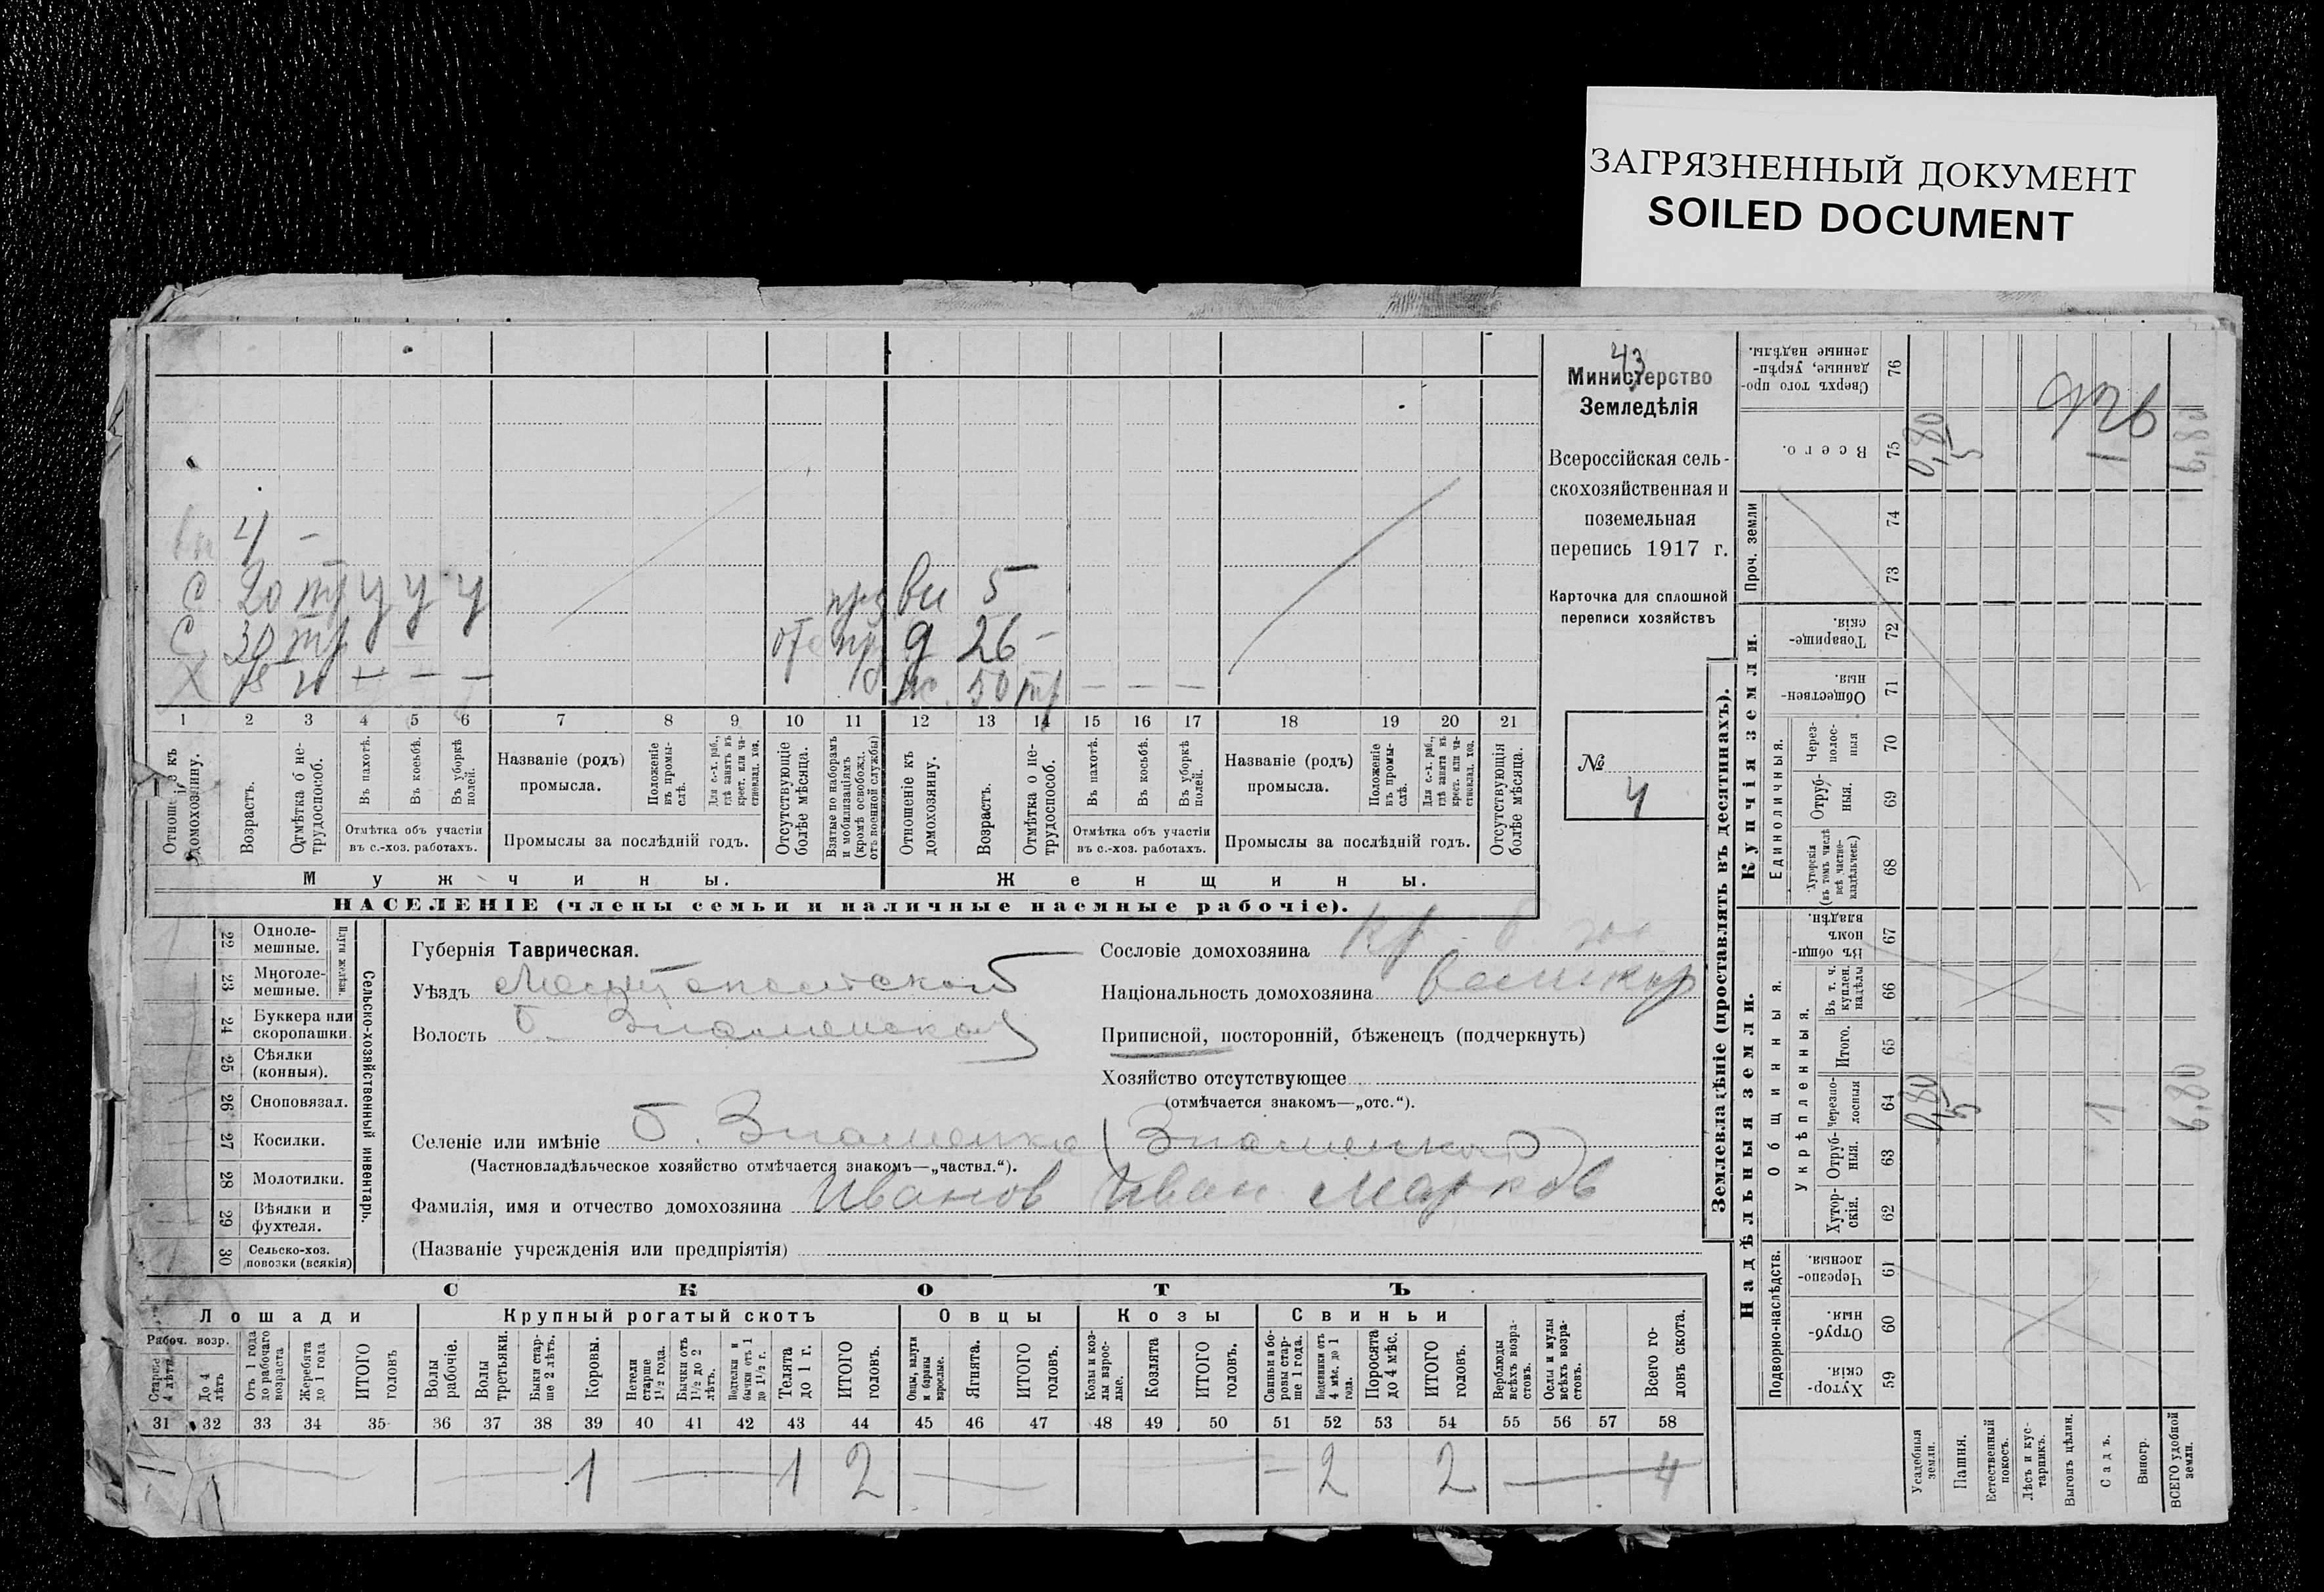 ЗАГРЯЗНЕННЫЙ ДОКУМЕНТ
SOILED DOCUMENT
43
Министерство
Земледѣлія
Всероссійская сель-
скохозяйственная и
поземельная
перепись 1917 г.
Карточка для сплошной
переписи хозяйствъ
№
4
4 –
С 20 тр у у у
С 30 тр
Х – – –
пр
отс пр
вн 5
д 26 –
ж. 50 тр – – –
1 2 3 4 5 6 7 8 9 10 11 12 13 14 15 16 17 18 19 20 21
Отношеніе къ домохозяину.
Возрастъ.
Отмѣтка о не-трудоспособ.
Въ пахотѣ.
Въ косьбѣ.
Въ уборкѣ полей.
Отмѣтка объ участіи
въ с.-хоз. работахъ.
Названіе (родъ)
промысла.
Положеніе въ промы-слѣ.
Для с.-х. раб., гдѣ занятъ въ крест. или ча-стновлад. хоз.
Промыслы за послѣдній годъ.
Отсутствующіе болѣе мѣсяца.
Взятые по наборамъ и мобилизаціямъ (кромѣ освобожд. отъ военной службы)
Отношеніе къ домохозяину.
Возрастъ.
Отмѣтка о не-трудоспособ.
Въ пахотѣ.
Въ косьбѣ.
Въ уборкѣ полей.
Отмѣтка объ участіи
въ с.-хоз. работахъ.
Названіе (родъ)
промысла.
Положеніе въ промы-слѣ.
Для с.-х. раб., гдѣ занята въ крест. или ча-стновлад. хоз.
Промыслы за послѣдній годъ.
Отсутствующія болѣе мѣсяца.
Мужчины.
Женщины.
НАСЕЛЕНІЕ (члены семьи и наличные наемные рабочіе).
22 Одноле-мешные.
23 Многоле-мешные.
Плуги желѣзн.
24 Буккера или скоропашки.
25 Сѣялки (конныя).
26 Сноповязал.
27 Косилки.
28 Молотилки.
29 Вѣялки и фухтеля.
30 Сельско-хоз. повозки (всякія)
Сельско-хозяйственный инвентарь.
Губернія Таврическая.
Уѣздъ Мелитопольской
Волость Б. Знаменской
Селеніе или имѣніе Б. Знаменка (Знаменка)
(Частновладѣльческое хозяйство отмѣчается знакомъ—„частвл.“).
Фамилія, имя и отчество домохозяина Иванов Иван Марков
(Названіе учрежденія или предпріятія)
Сословіе домохозяина кр
Національность домохозяина великор
Приписной, посторонній, бѣженецъ (подчеркнуть)
Хозяйство отсутствующее
(отмѣчается знакомъ—„отс.“).
СКОТЪ
Лошади
Крупный рогатый скотъ
Овцы
Козы
Свиньи
Рабоч. возр.
Старше 4 лѣтъ
До 4 лѣтъ
Отъ 1 года до рабочаго возраста
Жеребята до 1 года
ИТОГО головъ
Волы рабочіе.
Волы третьяки.
Быки стар-ше 2 лѣтъ.
Коровы.
Нетели старше 1½ года.
Бычки отъ 1½ до 2 лѣтъ.
Подтелки и бычки отъ 1 до 1½ г.
Телята до 1 г.
ИТОГО головъ.
Овцы, валухи и бараны взрослые.
Ягнята.
ИТОГО головъ.
Козы и коз-лы взрос-лые.
Козлята
ИТОГО головъ.
Свиньи и бо-ровы стар-ше 1 года.
Подсвинки отъ 4 мѣс. до 1 года.
Поросята до 4 мѣс.
ИТОГО головъ.
Верблюды всѣхъ возра-стовъ.
Ослы и мулы всѣхъ возра-стовъ.
Всего го-ловъ скота.
31 32 33 34 35 36 37 38 39 40 41 42 43 44 45 46 47 48 49 50 51 52 53 54 55 56 57 58
1 1 2 – 2 2 4
Землевладѣніе (проставлять въ десятинахъ).
Купчія земли.
Надѣльныя земли.
Сверхъ того про-данные, укрѣп-ленные надѣлы. 76
Всего. 75
Проч. земли
74
73
Товарище-скія. 72
Обществен-ныя. 71
Единоличныя.
Через-полос-ныя 70
Отруб-ныя. 69
Хуторскія (въ томъ числѣ всѣ частно-владѣльческ.) 68
Общинныя.
Въ общи-номъ владѣн. 67
Укрѣпленныя.
Въ т. ч. куплен. надѣлы 66
Итого. 65
Черезпо-лосныя 64
Отруб-ныя. 63
Хутор-скія. 62
Подворно-наслѣдств.
Черезпо-лосныя. 61
Отруб-ныя. 60
Хутор-скія. 59
Усадебныя земли.
Пашня.
Естественный покосъ.
Лѣсъ и кус-тарникъ.
Выгонъ цѣлин.
Садъ.
Виногр.
ВСЕГО удобной земли.
0,80
5
1
6,80
926
0,80
5
1
6,80